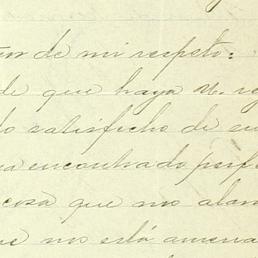 de mi respeto:
de que haya U. re
do satisfecho de su
encontrado perf
cosa que nos alar
nos está amena